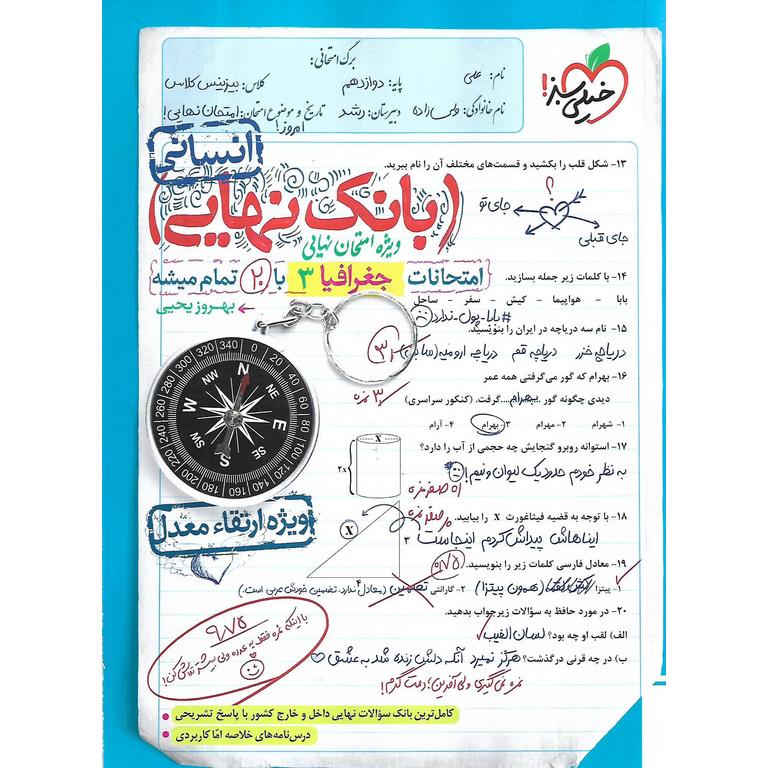 خیلی سبز!
برگ امتحانی:
نام: علی
پایه: دوازدهم
کلاس: بیزینس کلاس
نام خانوادگی: ولی زاده
دبیرستان: رشد
تاریخ و موضوع امتحان: امتحان نهایی!
امروز!
انسانی
۱۳- شکل قلب را بکشید و قسمت‌های مختلف آن را نام ببرید.
(بانک نهایی)
؟
جای تو
جای قبلی
ویژه امتحان نهایی
امتحانات جغرافیا ۳ با ۲۰ تمام میشه
بهروز یحیی
۱۴- با کلمات زیر جمله بسازید.
بابا - هواپیما - کیش - سفر - ساحل
#بابا-پول-ندارد
۱۵- نام سه دریاچه در ایران را بنویسید.
دریاچه خزر دریاچه قم دریاچه ارومیه
۱۶- بهرام که گور می‌گرفتی همه عمر
دیدی چگونه گور ...بهرام... گرفت. (کنکور سراسری)
۳ نمره
۱- شهرام ۲- مهرام ۳- بهرام ۴- آرام
۱۷- استوانه روبرو گنجایش چه حجمی از آب را دارد؟
به نظر خودم حدود یک لیوان و نیم!
X
2X
صفر نمره
۱۸- با توجه به قضیه فیثاغورث X را بیابید.
صفر نمره
ایناهاش پیداش کردم اینجاست
X
۳
۴
ویژه ارتقاء معدل
۱۹- معادل فارسی کلمات زیر را بنویسید.
۰/۷۵
۱- پیتزا (همون پیتزا) ۲- گارانتی تضمین (معادل ندارد. تضمین خودش عربی است.)
۲۰- در مورد حافظ به سؤالات زیر جواب بدهید.
الف) لقب او چه بود؟ لسان الغیب
ب) در چه قرنی درگذشت؟ هرگز نمیرد آنکه دلش زنده شد به عشق
نمره نمی‌گیری ولی آفرین؛ دمت گرم!
۹/۷۵
با اینکه نمره فقط یه عدده ولی بیشتر تلاش کن!
کامل‌ترین بانک سؤالات نهایی داخل و خارج کشور با پاسخ تشریحی
درس‌نامه‌های خلاصه امّا کاربردی
0 20 40 60 80 100 120 140 160 180 200 220 240 260 280 300 320 340
N NE E SE S SW W NW